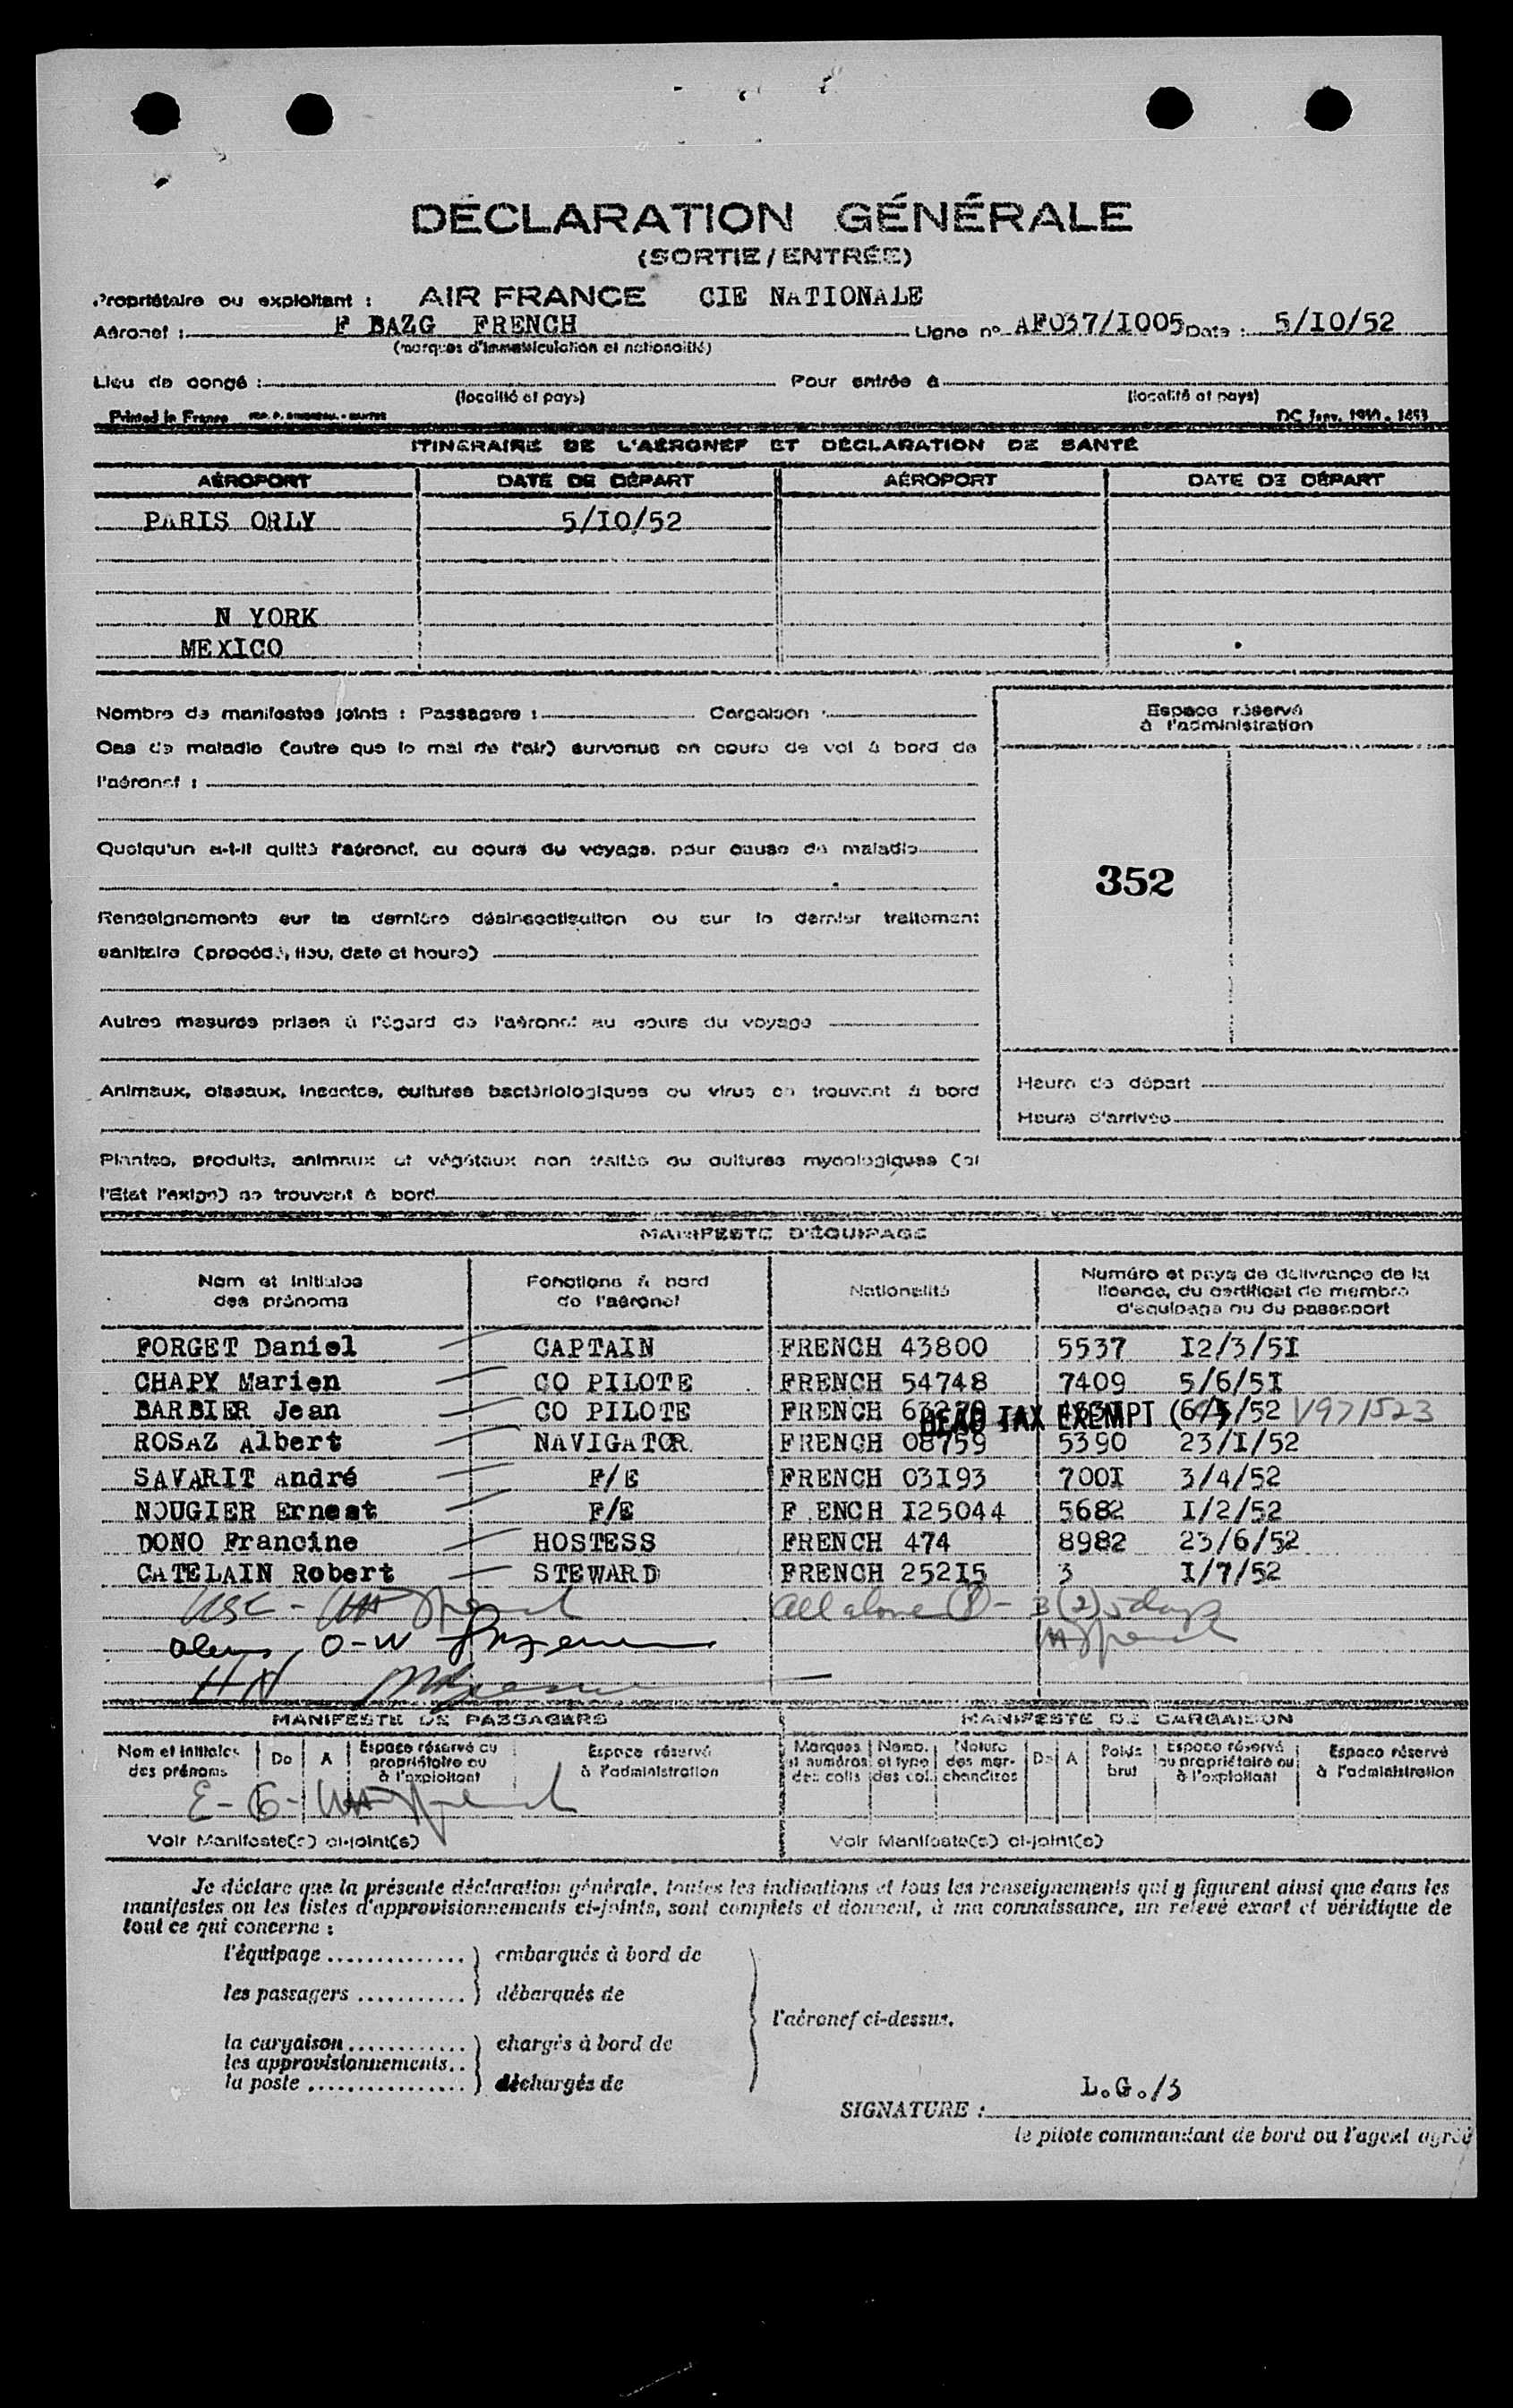 DÉCLARATION GÉNÉRALE
(SORTIE / ENTRÉE)
Propriétaire ou exploitant : AIR FRANCE CIE NATIONALE
Aéronef : F BAZG FRENCH Ligne n° AF037/I005 Date : 5/IO/52
(marques d'immatriculation et nationalité)
Lieu de congé : Pour entrée à
(localité et pays) (localité et pays)
Printed in France
ITINÉRAIRE DE L'AÉRONEF ET DÉCLARATION DE SANTÉ
AÉROPORT DATE DE DÉPART AÉROPORT DATE DE DÉPART
PARIS ORLY 5/IO/52
N YORK
MEXICO
Nombre de manifestes joints : Passagers : Cargaison :
Cas de maladie (autre que le mal de l'air) survenus en cours de vol à bord de
l'aéronef :
Quelqu'un a-t-il quitté l'aéronef, au cours du voyage, pour cause de maladie
Renseignements sur la dernière désinsectisation ou sur le dernier traitement
sanitaire (procédé, lieu, date et heure)
Autres mesures prises à l'égard de l'aéronef au cours du voyage
Animaux, oiseaux, insectes, cultures bactériologiques ou virus se trouvant à bord
Plantes, produits, animaux et végétaux non traités ou cultures mycologiques (si
l'Etat l'exige) se trouvant à bord
Espace réservé
à l'administration
352
Heure de départ
Heure d'arrivée
MANIFESTE D'ÉQUIPAGE
Nom et initiales des prénoms Fonctions à bord de l'aéronef Nationalité Numéro et pays de délivrance de la licence, du certificat de membre d'équipage ou du passeport
FORGET Daniel CAPTAIN FRENCH 43800 5537 I2/3/5I
CHAPY Marien CO PILOTE FRENCH 54748 7409 5/6/5I
BARBIER Jean CO PILOTE FRENCH /52 V971523
HEAD TAX EXEMPT
ROSAZ Albert NAVIGATOR FRENCH 08759 5390 23/I/52
SAVARIT André F/E FRENCH 03I93 700I 3/4/52
NOUGIER Ernest F/E F ENCH I25044 5682 I/2/52
DONO Francine HOSTESS FRENCH 474 8982 23/6/52
CATELAIN Robert STEWARD FRENCH 252I5 3 I/7/52
all above (8) - 3(2) 5 days
O-W
HN
MANIFESTE DE PASSAGERS MANIFESTE DE CARGAISON
Nom et initiales des prénoms De A Espace réservé au propriétaire ou à l'exploitant Espace réservé à l'administration Marques et numéros des colis Nomb. et type des col. Nature des marchandises De A Poids brut Espace réservé au propriétaire ou à l'exploitant Espace réservé à l'administration
E-6-
Voir Manifeste(s) ci-joint(s) Voir Manifeste(s) ci-joint(s)
Je déclare que la présente déclaration générale, toutes les indications et tous les renseignements qui y figurent ainsi que dans les
manifestes ou les listes d'approvisionnements ci-joints, sont complets et donnent, à ma connaissance, un relevé exact et véridique de
tout ce qui concerne :
l'équipage .............. ) embarqués à bord de
les passagers ........... ) débarqués de
l'aéronef ci-dessus.
la cargaison ............. ) chargés à bord de
les approvisionnements..
la poste ................. ) déchargés de
L.G./3
SIGNATURE :
le pilote commandant de bord ou l'agent agréé